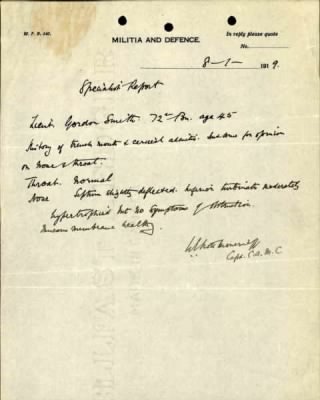 M. F. B. 340.
MILITIA AND DEFENCE.
In reply please quote
No.
8-1- 1919.
Specialist Report
Lieut Gordon Smith. 72nd Bn. age 45
History of trench mouth & cervical adenitis. Sent in for opinion
on nose & throat.
Throat. Normal
Nose Septum slightly deflected. Inferior turbinate moderately
hypertrophied but no symptoms of obstruction.
Mucous membrane healthy.
Capt. C.A.M.C